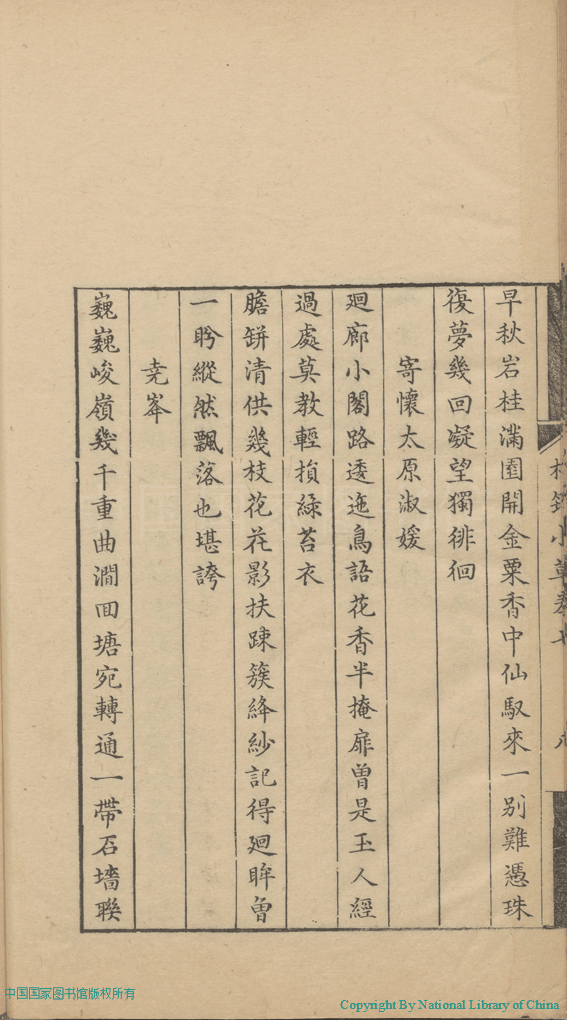 早秋岩桂滿園開金粟香中仙馭來一别難憑珠
復夢幾回凝望獨徘徊
寄懷太原淑媛
廻廊小閣路逶迤鳥語花香半掩扉曽是玉人經
過處莫教輕損綠苔衣
膽缾清供幾枝花花影扶踈簇絳紗記得廻眸曽
一盻縱然飄落也堪誇
堯峯
巍巍峻嶺幾千重曲澗回塘宛轉通一帶石墻聯
小草卷七
中国国家图书馆版权所有
Copyright By National Library of China